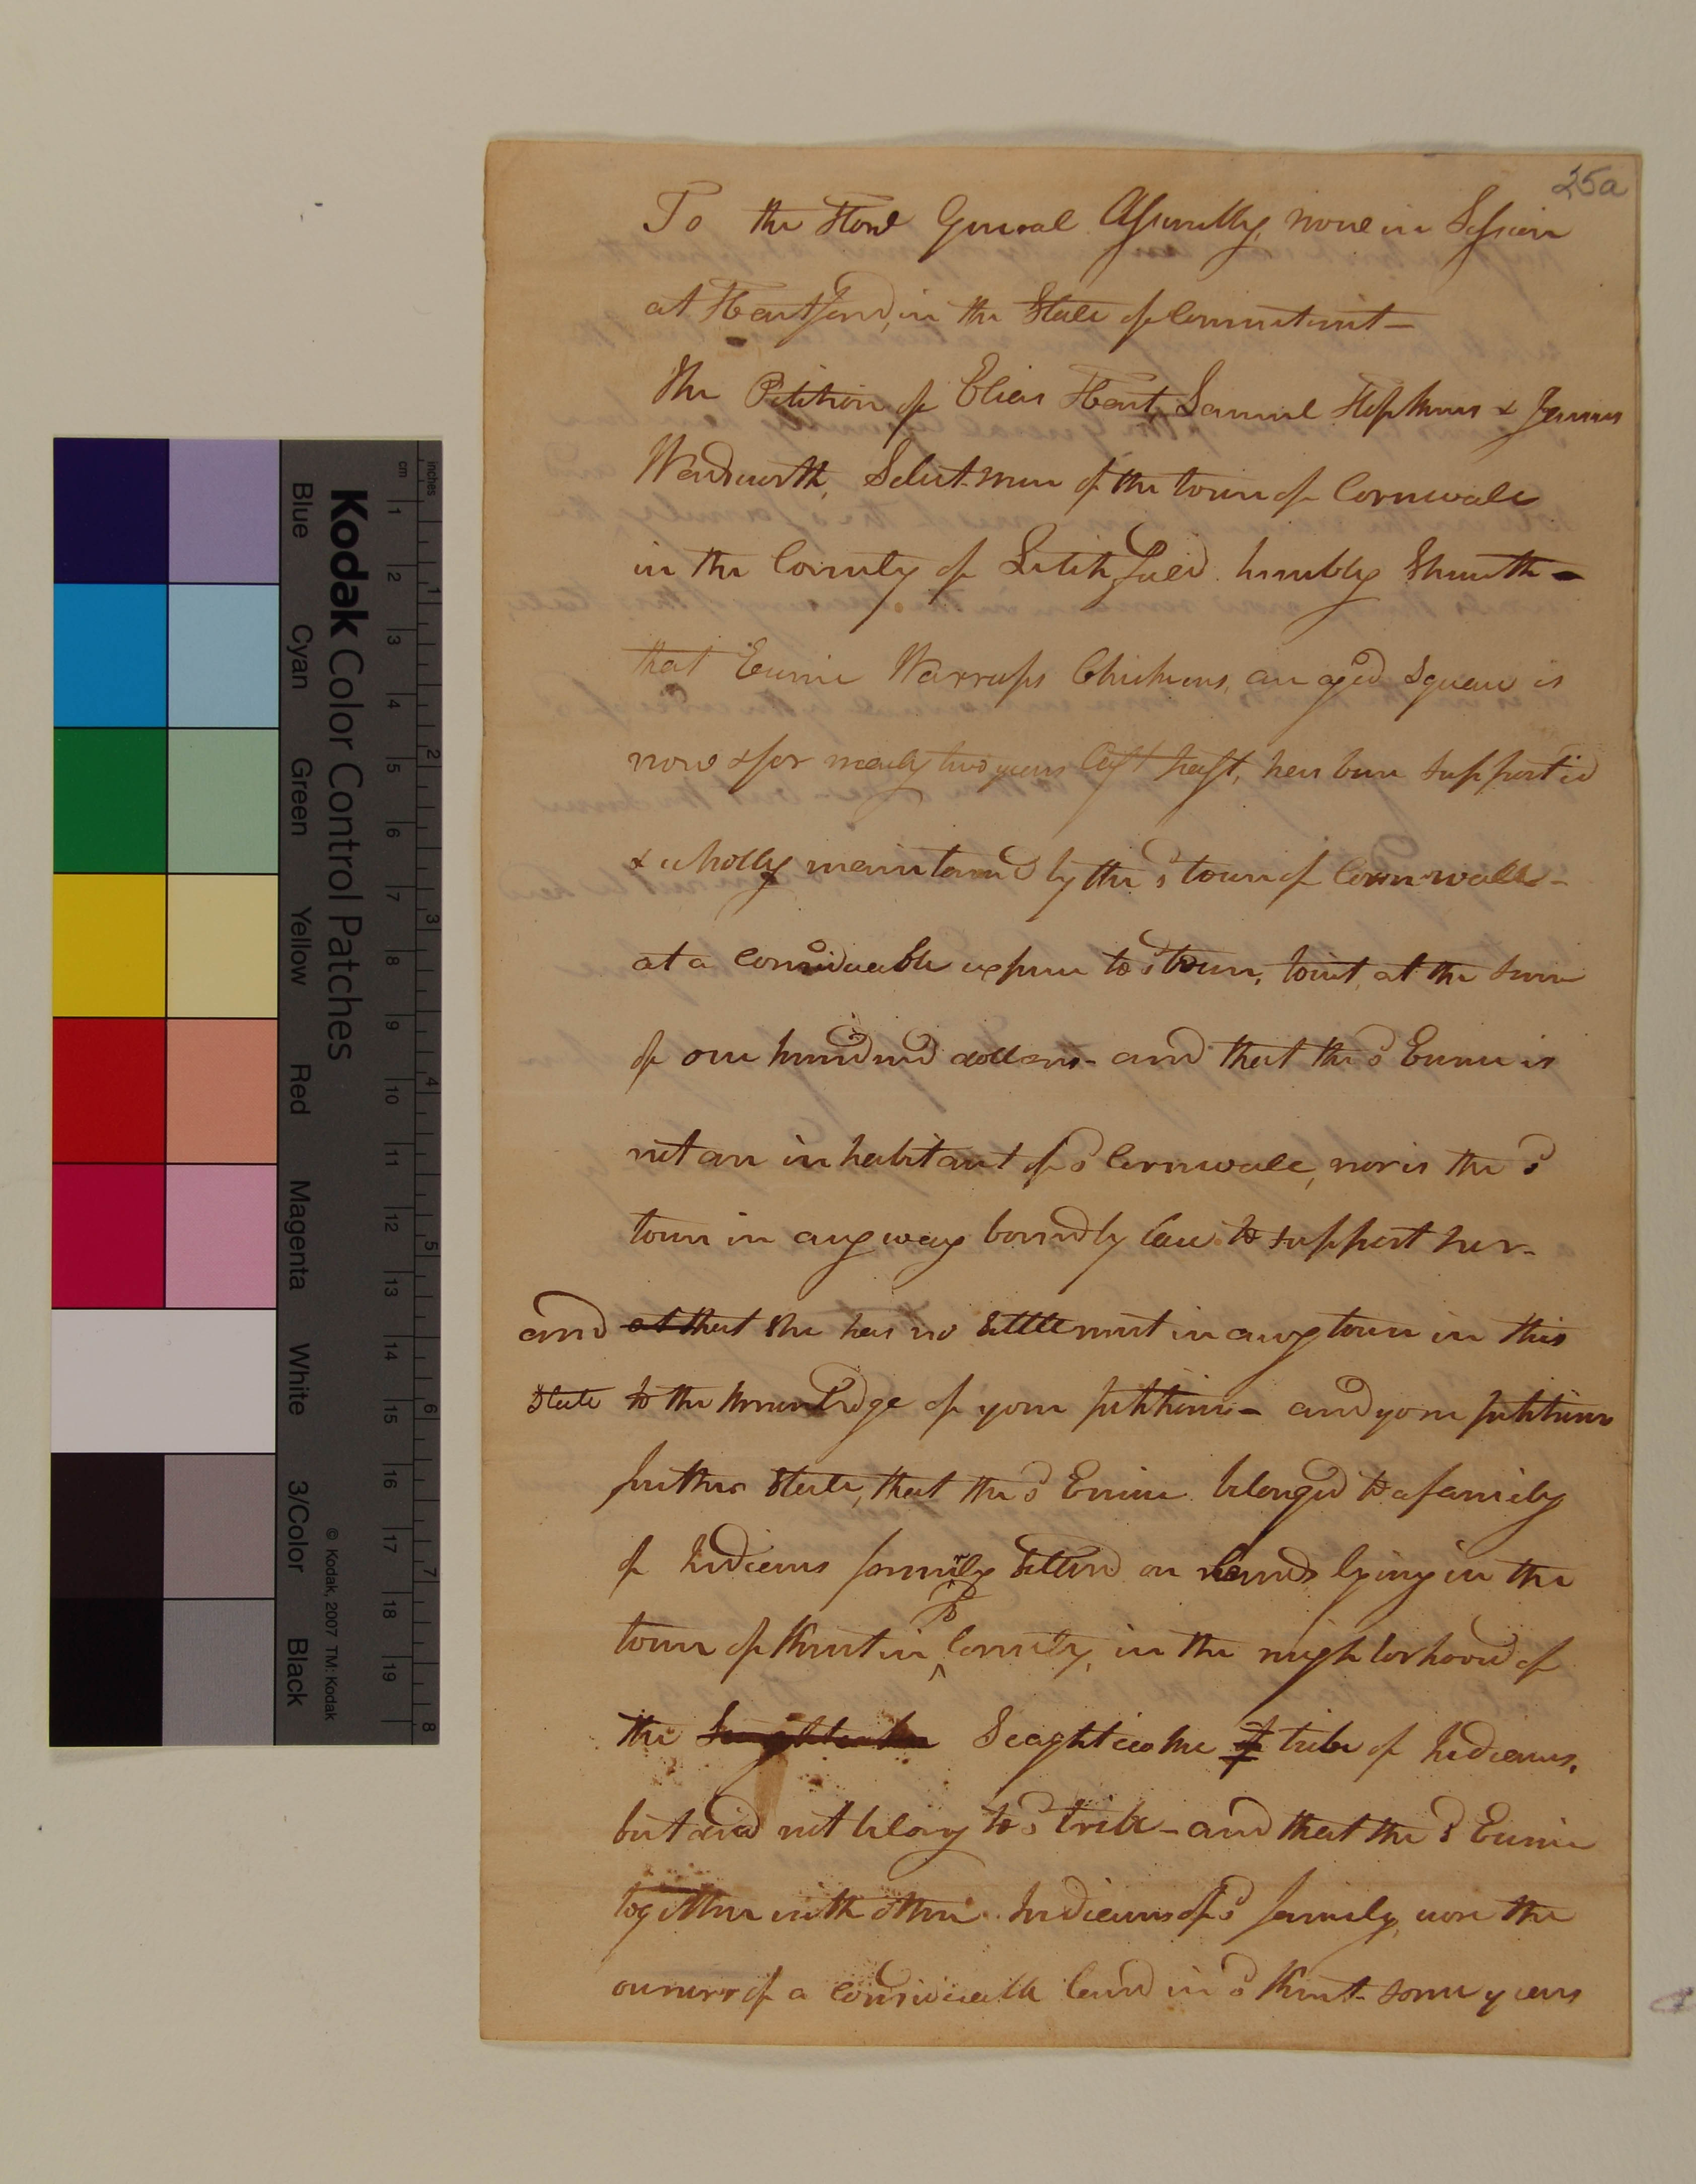 25a
To the Honl General Assembly, now in Session
at Hartford, in the State of Connecticut —
The Petition of Elias Hart, Samuel Hopkins & James
Wadsworth, Select-men of the town of Cornwall
in the County of Litchfield humbly Sheweth —
that Eunice Warrups Chickens, an aged squaw is
now & for nearly two years last past, has been supported
& wholly maintained by the sd town of Cornwall —
at a considerable expense to sd town, towit, at the sum
of one hundred dollars - and that the sd Eunice is
not an inhabitant of sd Cornwall, nor is the sd
town in any way bound by law to support her -
and at that she has no settlement in any town in this
State to the knowledge of your petitioners - and your petitioners
further state, that the sd Eunice belonged to a family
of Indians formerly settled on lands lying in the
town of Kent in sd County, in the neighborhood of
the Scaghticoke of tribe of Indians,
but did not belong to sd tribe - and that the sd Eunice
together with other Indians of sd family, were the
owners of a considerable land in sd Kent - some years
Kodak Color Control Patches
© Kodak, 2007 TM: Kodak
Blue Cyan Green Yellow Red Magenta White 3/Color Black
cm 1 2 3 4 5 6 7 8 9 10 11 12 13 14 15 16 17 18 19
inches 1 2 3 4 5 6 7 8